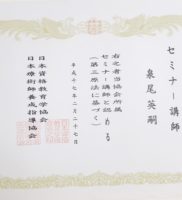 セミナー講師
泉尾英嗣
右之者当協会所属
セミナー講師と認める
(第三療法に基づく)
平成十七年二月二十七日
日本資格教育学協会
日本療術師養成指導協会